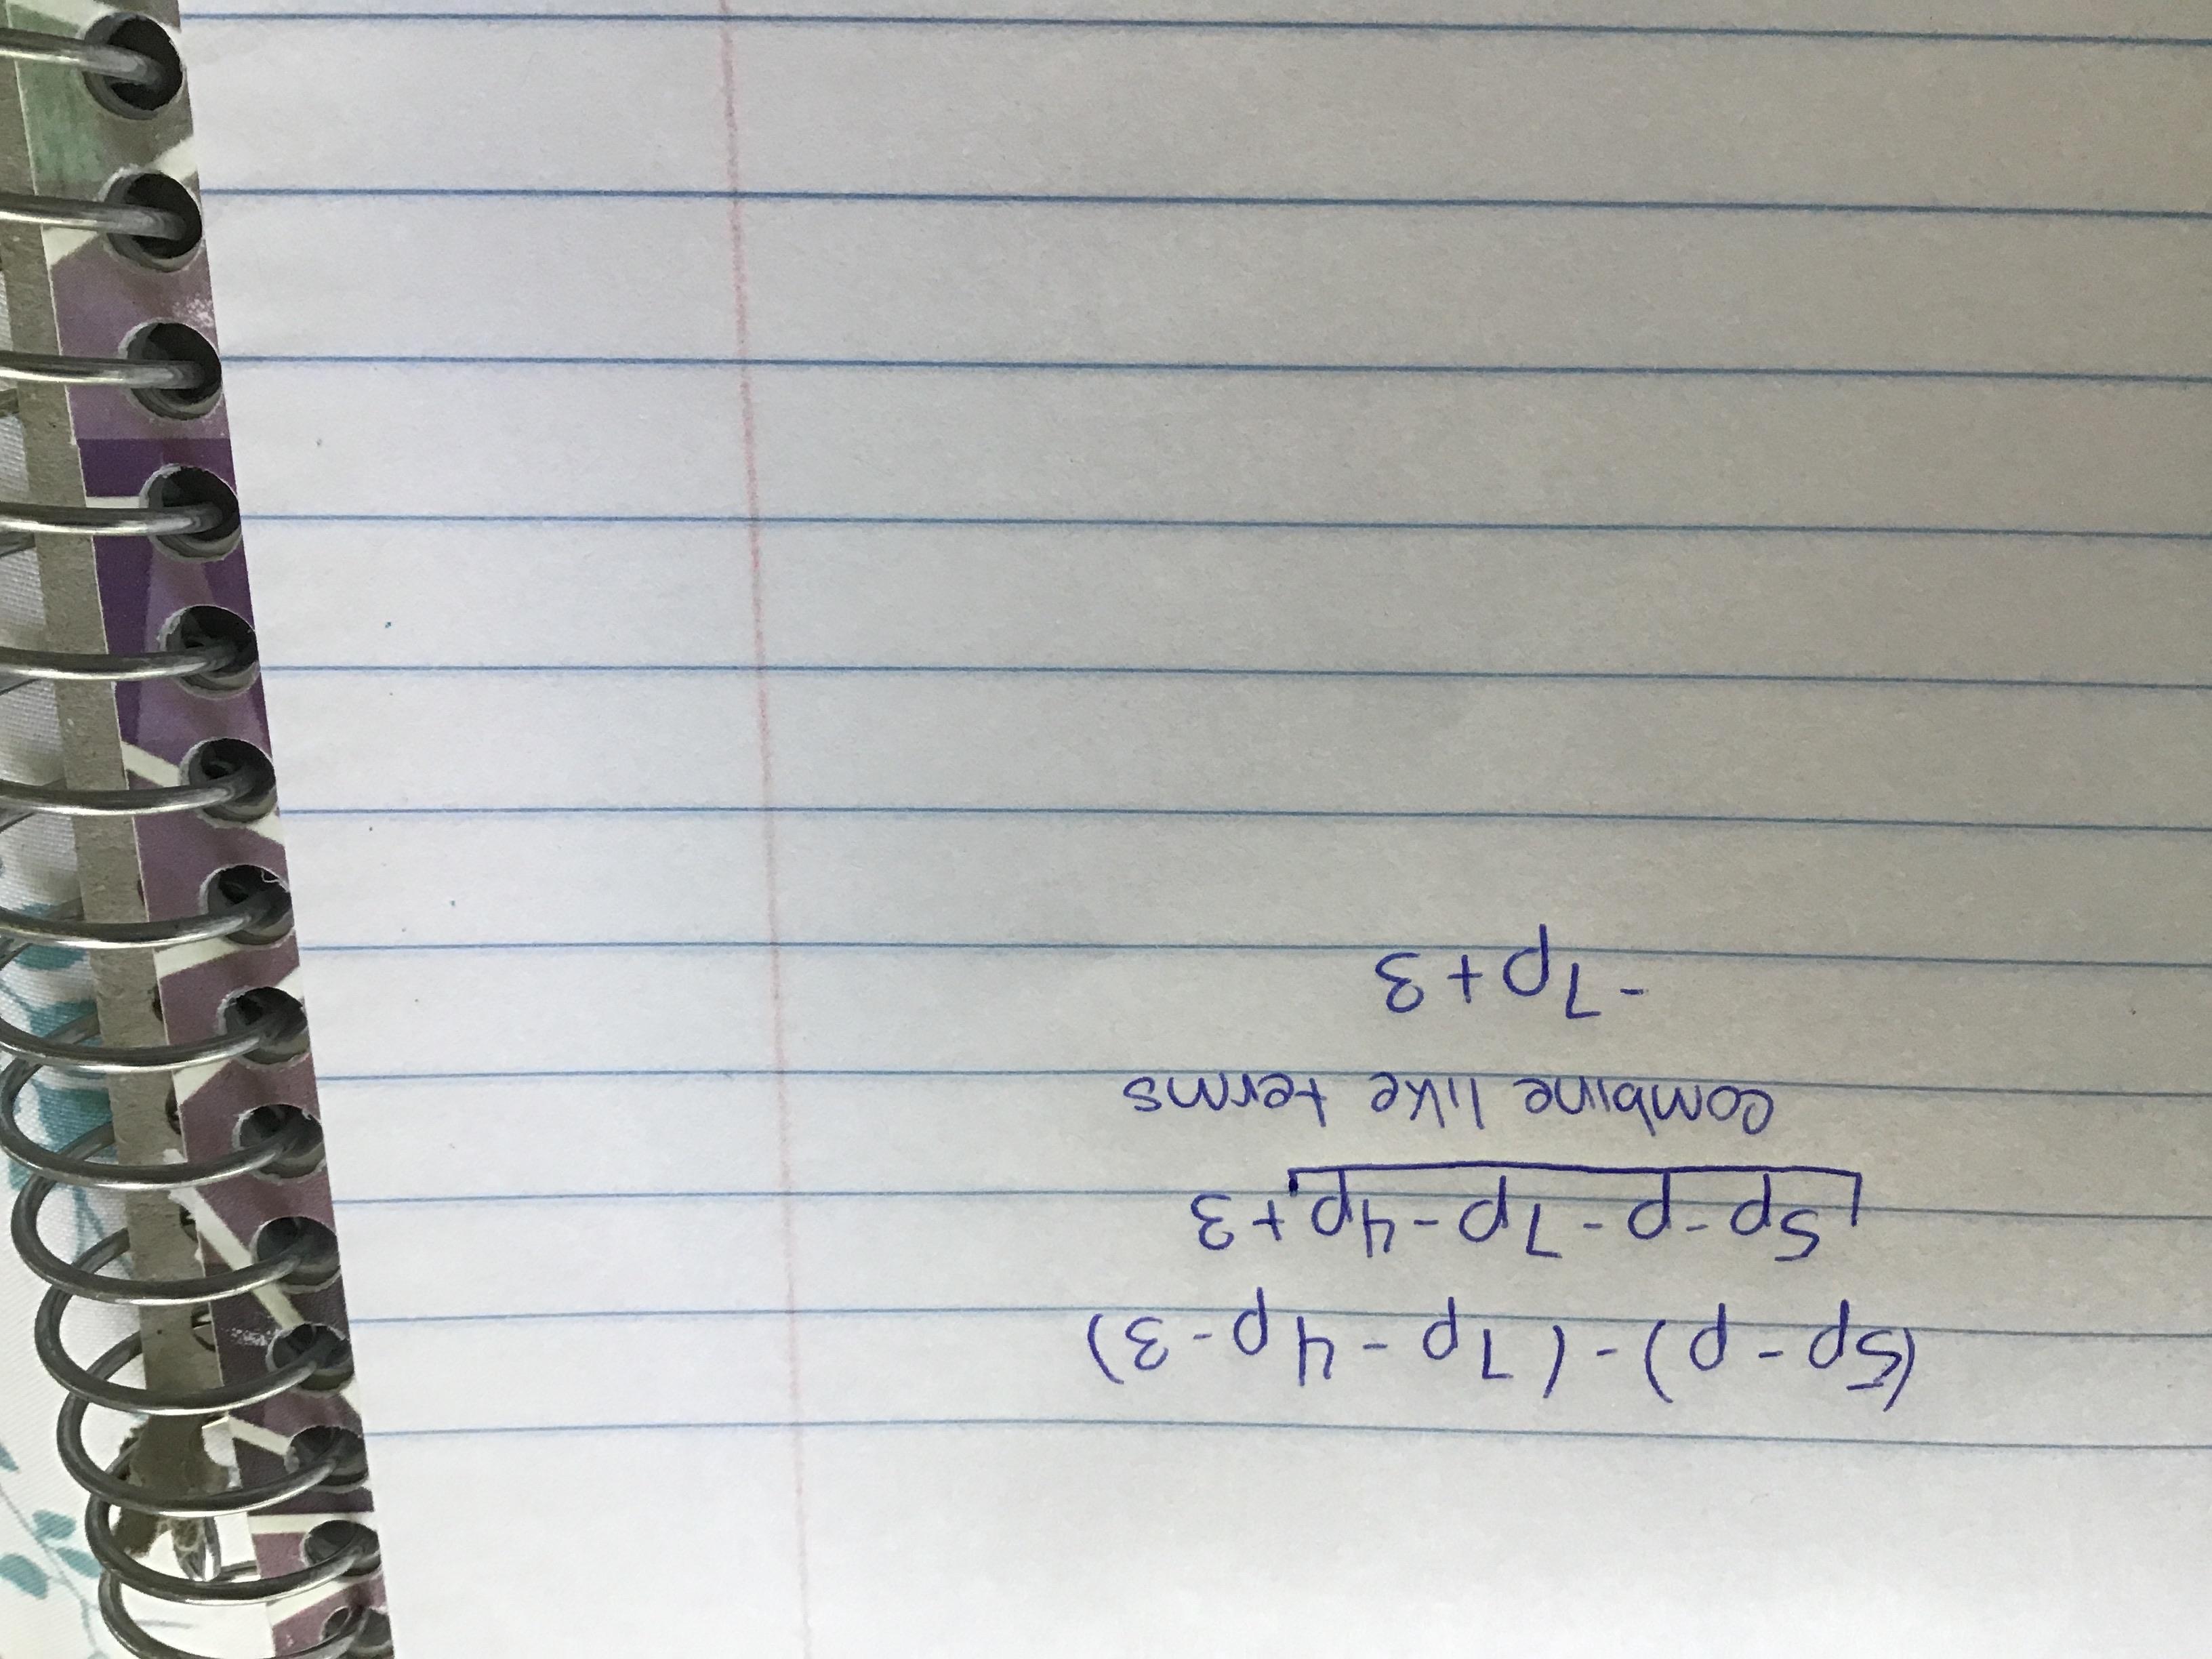 (5p - p) - (7p - 4p - 3)
5p - p - 7p - 4p + 3
combine like terms
-7p + 3